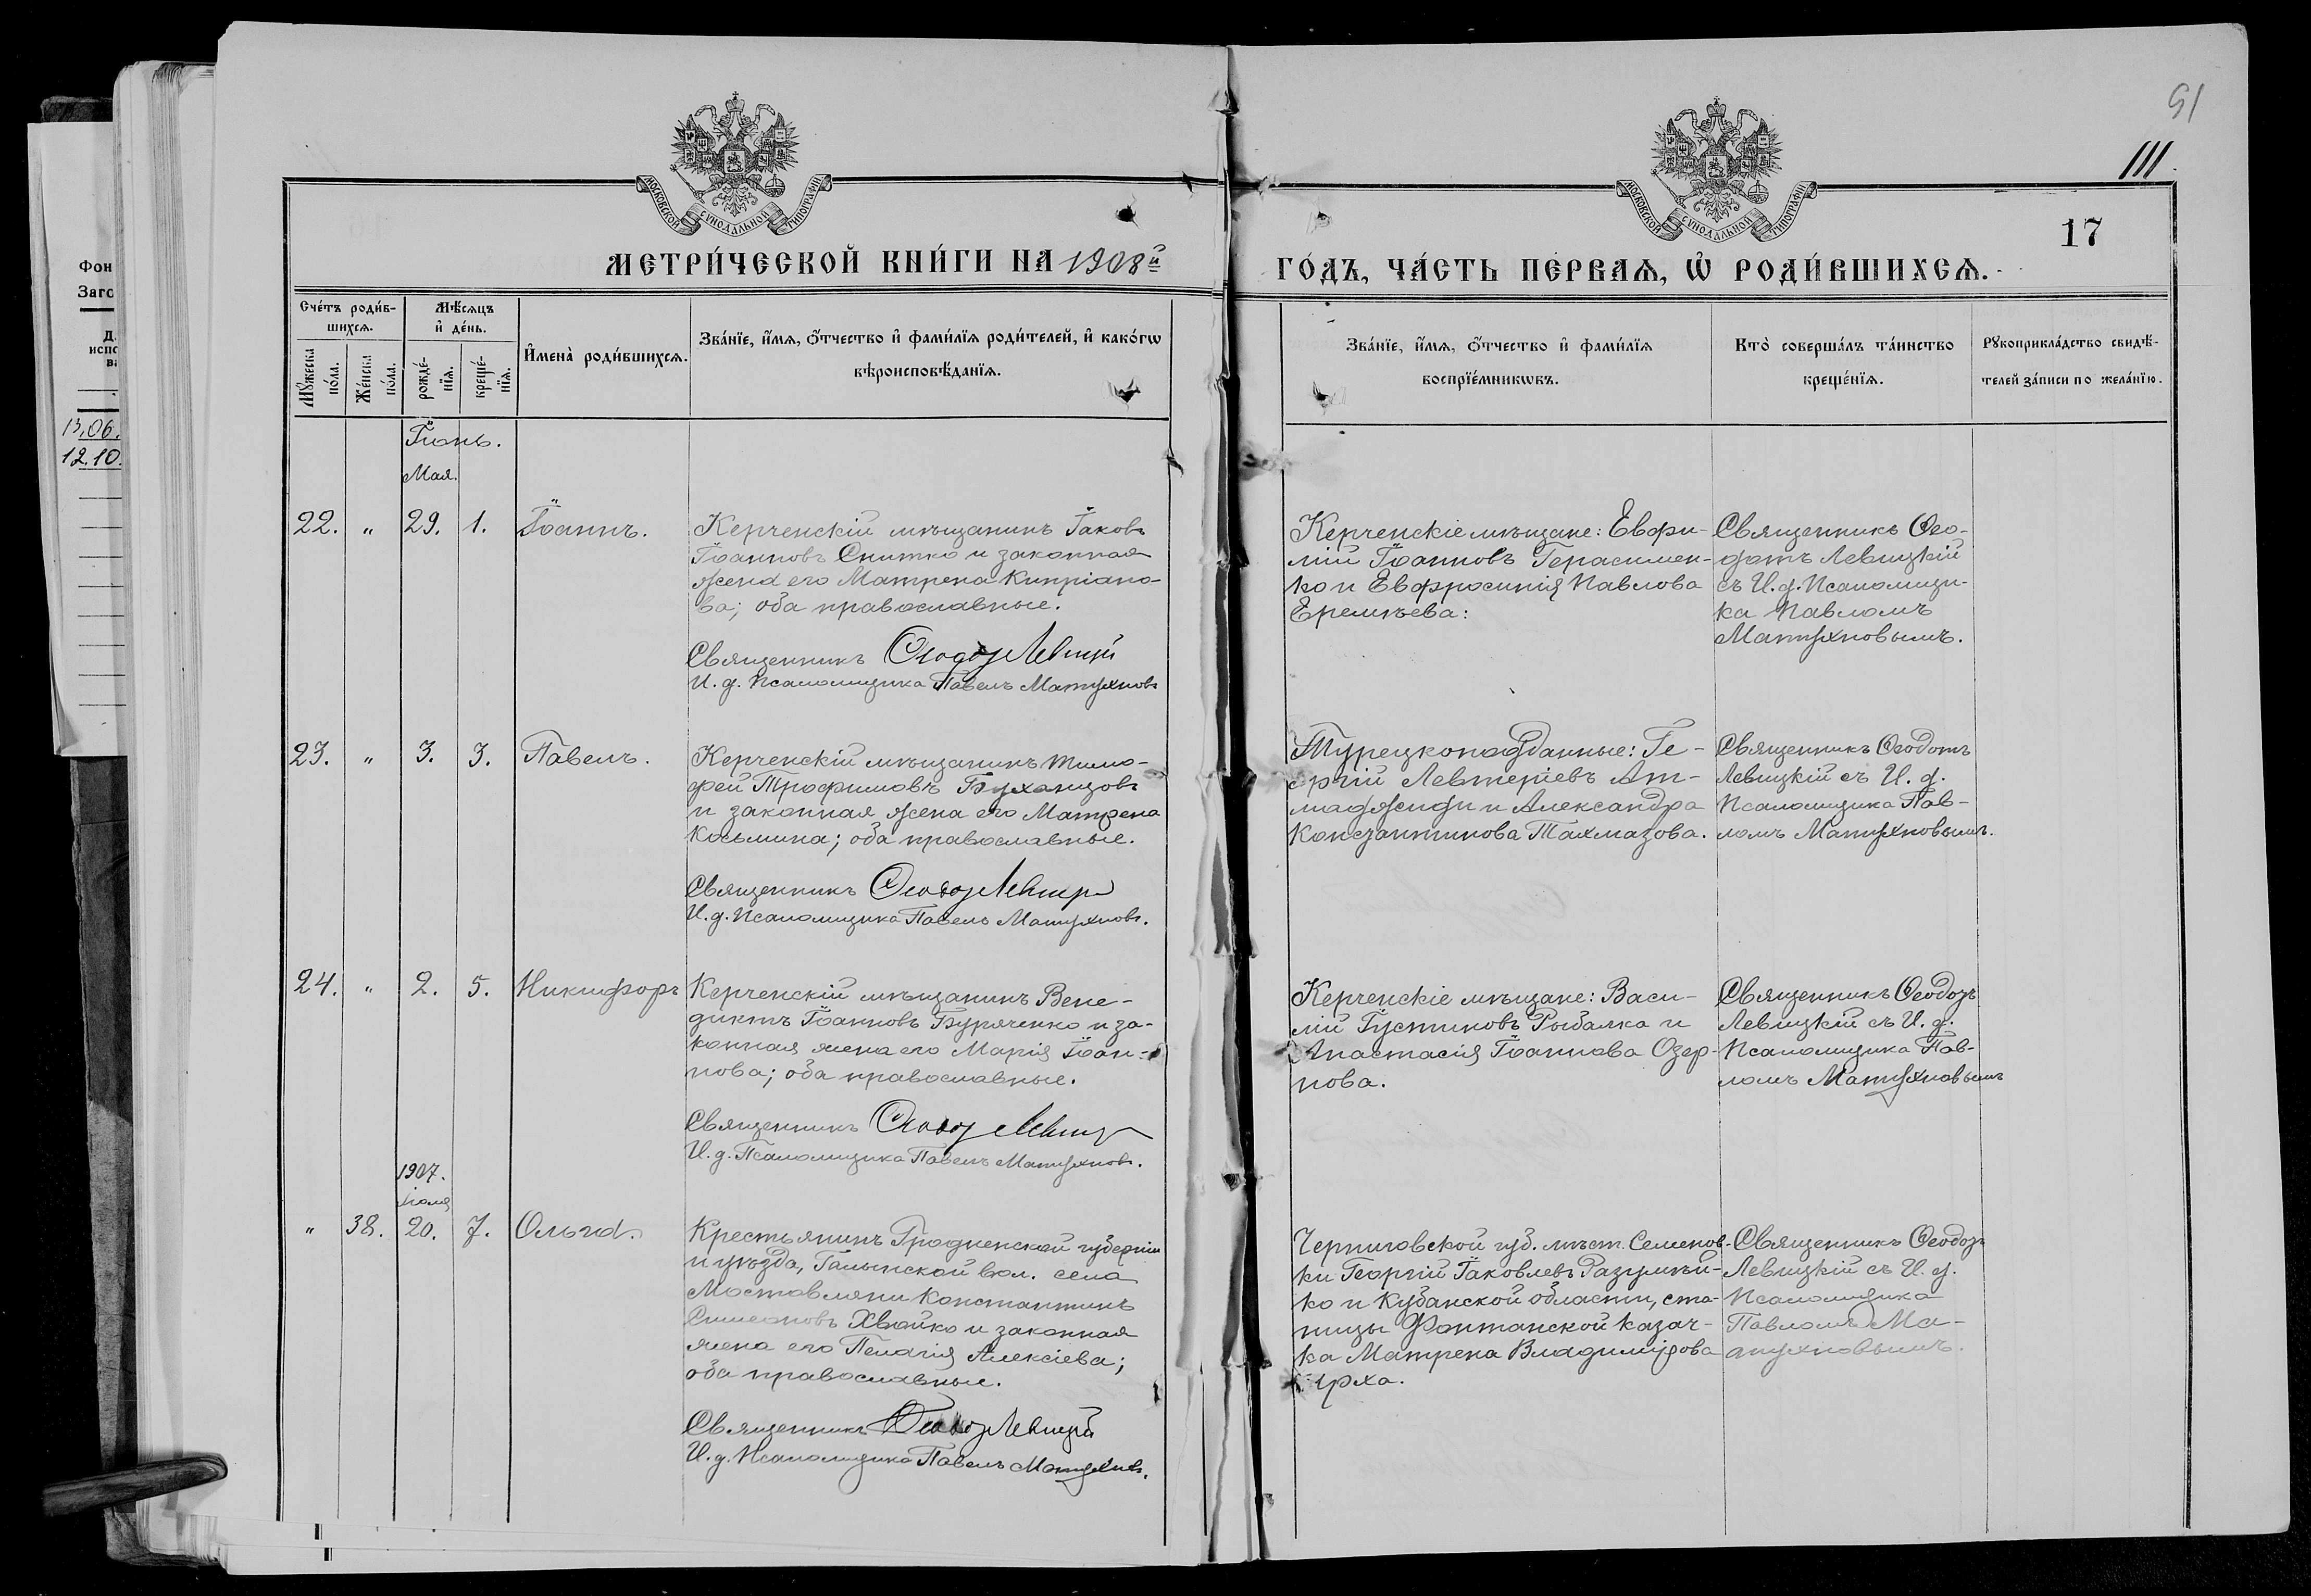 91
111.
17
МОСКОВСКОЙ СѴНОДАЛЬНОЙ ТИПОГРАФІИ
МОСКОВСКОЙ СѴНОДАЛЬНОЙ ТИПОГРАФІИ
МЕТРИ́ЧЕСКОЙ КНИ́ГИ НА 1908й
ГО́ДЪ, ЧА́СТЬ ПЕ́РВАѦ, Ѡ҆ РОДИ́ВШИХСѦ.
Счéтъ роди́в-
шихсѧ.
Мꙋ́жеска по́ла.
Же́нска по́ла.
Мѣ́сѧцъ
и҆ де́нь.
рожде́-
нїѧ.
креще́-
нїѧ.
И҆мена̀ роди́вшихсѧ.
Зва́нїе, и҆́мѧ, ѻ҆́тчество и҆ фами́лїѧ роди́телей, и҆ како́гѡ
вѣроисповѣ́данїѧ.
Зва́нїе, и҆́мѧ, ѻ҆́тчество и҆ фами́лїѧ
воспрїе́мникѡвъ.
Кто̀ соверша́лъ та́инство
креще́нїѧ.
Рꙋкоприкла́дство свидѣ́-
телей за́писи по жела́нїю.
Фон
Заго
13.06.
12.10.
Іюнь.
Мая.
22. " 29. 1. Іоаннъ.
Керченскій мѣщанинъ Іаковъ
Іоанновъ Снитко и законная
жена его Матрена Кипріано-
ва; оба православные.
Священникъ Ѳеодот Левицкій
И. д. Псаломщика Павелъ Матухновъ
Керченскіе мѣщане: Евфи-
мій Іоанновъ Герасимен-
ко и Евфросинія Павлова
Еремѣева:
Священникъ Ѳео-
дотъ Левицкій
съ И. д. Псаломщи-
ка Павломъ
Матухновымъ.
23. " 3. 3. Павелъ.
Керченскій мѣщанинъ Тимо-
фей Трофимовъ Буханцовъ
и законная жена его Матрена
Косьмина; оба православные.
Священникъ Ѳеодот Левицкій
И. д. Псаломщика Павелъ Матухновъ.
Турецкоподданные: Ге-
оргій Левтеріевъ Ат-
маджиди и Александра
Константинова Тахмазова.
Священникъ Ѳеодотъ
Левицкій съ И. д.
Псаломщика Пав-
ломъ Матухновымъ.
24. " 2. 5. Никифоръ
Керченскій мѣщанинъ Вене-
диктъ Іоанновъ Буряченко и за-
конная жена его Марія Іоан-
нова; оба православные.
Священникъ Ѳеодот Левицкій
И. д. Псаломщика Павелъ Матухновъ.
Керченскіе мѣщане: Васи-
лій Іустиновъ Рыбалка и
Анастасія Іоаннова Озер-
нова.
Священникъ Ѳеодотъ
Левицкій съ И. д.
Псаломщика Пав-
ломъ Матухновымъ
1907.
Іюля
" 38. 20. 7. Ольга.
Крестьянинъ Гродненской губерніи
и уѣзда, Галынской вол. села
Мостовляни Константинъ
Симеоновъ Хвойко и законная
жена его Пелагія Алексіева;
оба православные.
Священникъ Ѳеодот Левицкій
И. д. Псаломщика Павелъ Матухновъ.
Черниговской губ. мѣст. Семенов-
ки Георгій Іаковлевъ Разумѣй-
ко и Кубанской области, ста-
ницы Фонтанской казач-
ка Матрена Владимірова
Священникъ Ѳеодотъ
Левицкій съ И. д.
Псаломщика
Павломъ Ма-
тухновымъ.